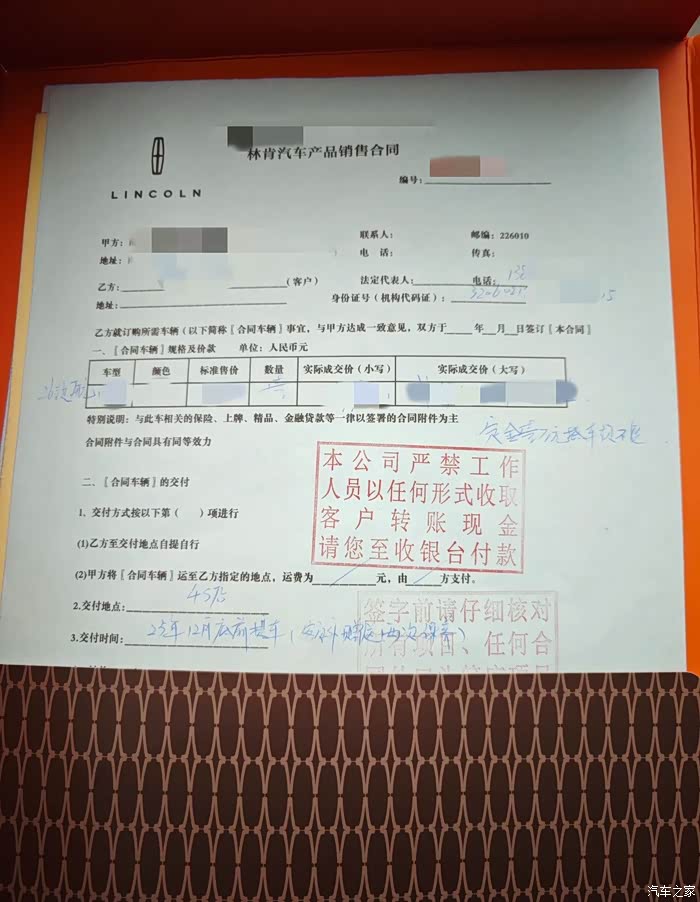 林肯汽车产品销售合同
LINCOLN
编号:
甲方: 联系人: 邮编: 226010
地址: 电 话: 传真:
乙方: (客户) 法定代表人: 电话: 138
地址: 身份证号(机构代码证):
乙方就订购所需车辆(以下简称〖合同车辆〗事宜，与甲方达成一致意见，双方于 年 月 日签订〖本合同〗
一、〖合同车辆〗规格及价款 单位: 人民币元
车型 颜色 标准售价 数量 实际成交价(小写) 实际成交价(大写)
特别说明: 与此车相关的保险、上牌、精品、金融贷款等一律以签署的合同附件为主
定金壹万元抵车款不退
合同附件与合同具有同等效力
本公司严禁工作
人员以任何形式收取
客户转账现金
请您至收银台付款
二、〖合同车辆〗的交付
1. 交付方式按以下第( )项进行
(1)乙方至交付地点自提自行
(2)甲方将〖合同车辆〗运至乙方指定的地点，运费为 元，由 方支付。
2.交付地点: 4S店
签字前请仔细核对
3.交付时间: 25年12月底前提车(另外赠送两次保养)
所有项目、任何合
汽车之家